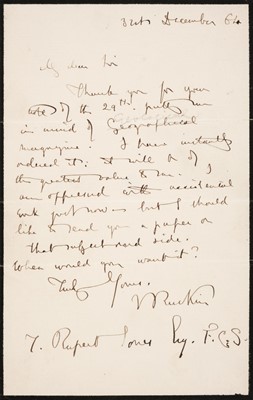 31st December 64
My dear Sir
Thank you for your
note of the 29th. putting me
in mind of Geographical
magazine. I have instantly
ordered it: it will be of
the greatest value to me. I
am oppressed with accidental
work just now – but I should
like to send you a paper on
that subject
When would you want it?
Truly Yours.
J Ruskin
T. Rupert Jones Esq. F.G.S.